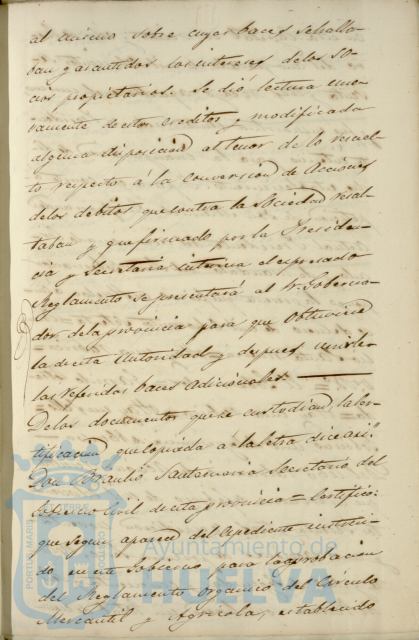 al mismo sobre cuyas bases se halla-
ban garantidos los intereses de los so-
cios propietarios. Se dió lectura nue-
vamente de estos creditos y modificada
alguna disposicion al tenor de lo resuel-
to respecto á la Conversion de Acciones
de los debitos que contra la Sociedad resul-
taban y que firmado por la Presiden-
cia y Secretaria interina el expresado
Reglamento se presentará al Sr. Goberna-
dor de la provincia para que obtuviese
la de esta Autoridad y despues
las referidas bases adicionales.
De los documentos que se custodian la Cer-
tificacion que copiada a la letra dice asi."
Don Braulio Santamaria Secretario del
Gobierno Civil de esta provincia = Certifico:
que segun aparece del Expediente instrui-
do en este Gobierno para la aprobacion
del Reglamento organico del Circulo
Mercantil y Agricola, establecido
Ayuntamiento de
HUELVA